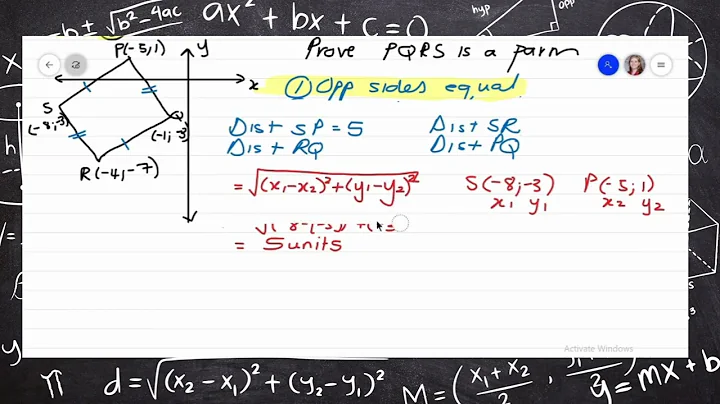 -b ± √b²-4ac
ax² + bx + c = 0
hyp
opp
P(-5;1)
y
x
S
(-8;-3)
Q
(-1;-3)
R(-4;-7)
Prove PQRS is a parm
① Opp sides equal
Dist SP = 5
Dist SR
Dist RQ
Dist PQ
= √(x₁-x₂)²+(y₁-y₂)²
S(-8;-3) P(-5;1)
x₁ y₁ x₂ y₂
= 5 units
Activate Windows
π d = √(x₂ - x₁)² + (y₂ - y₁)²
M = (x₁ + x₂ / 2 ,
y = mx + b